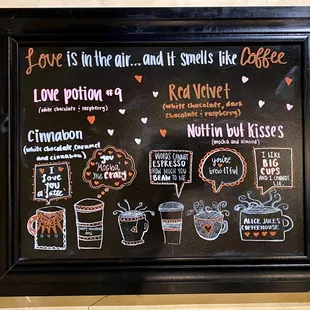 Love is in the air...and it smells like Coffee
Love potion #9
(white chocolate & raspberry)
Red Velvet
(white chocolate, dark
chocolate & raspberry)
Cinnabon
(white chocolate, caramel
and cinnabon)
Nuttin but Kisses
(mocha and almond)
I
love
you
a latte
you
Mocha
me
Crazy
WORDS CANNOT
ESPRESSO
HOW MUCH YOU
BEAN TO ME
you're
brewtiful
I LIKE
BIG
CUPS
AND I CANNOT
LIE
ALICE JULES'
COFFEEHOUSE